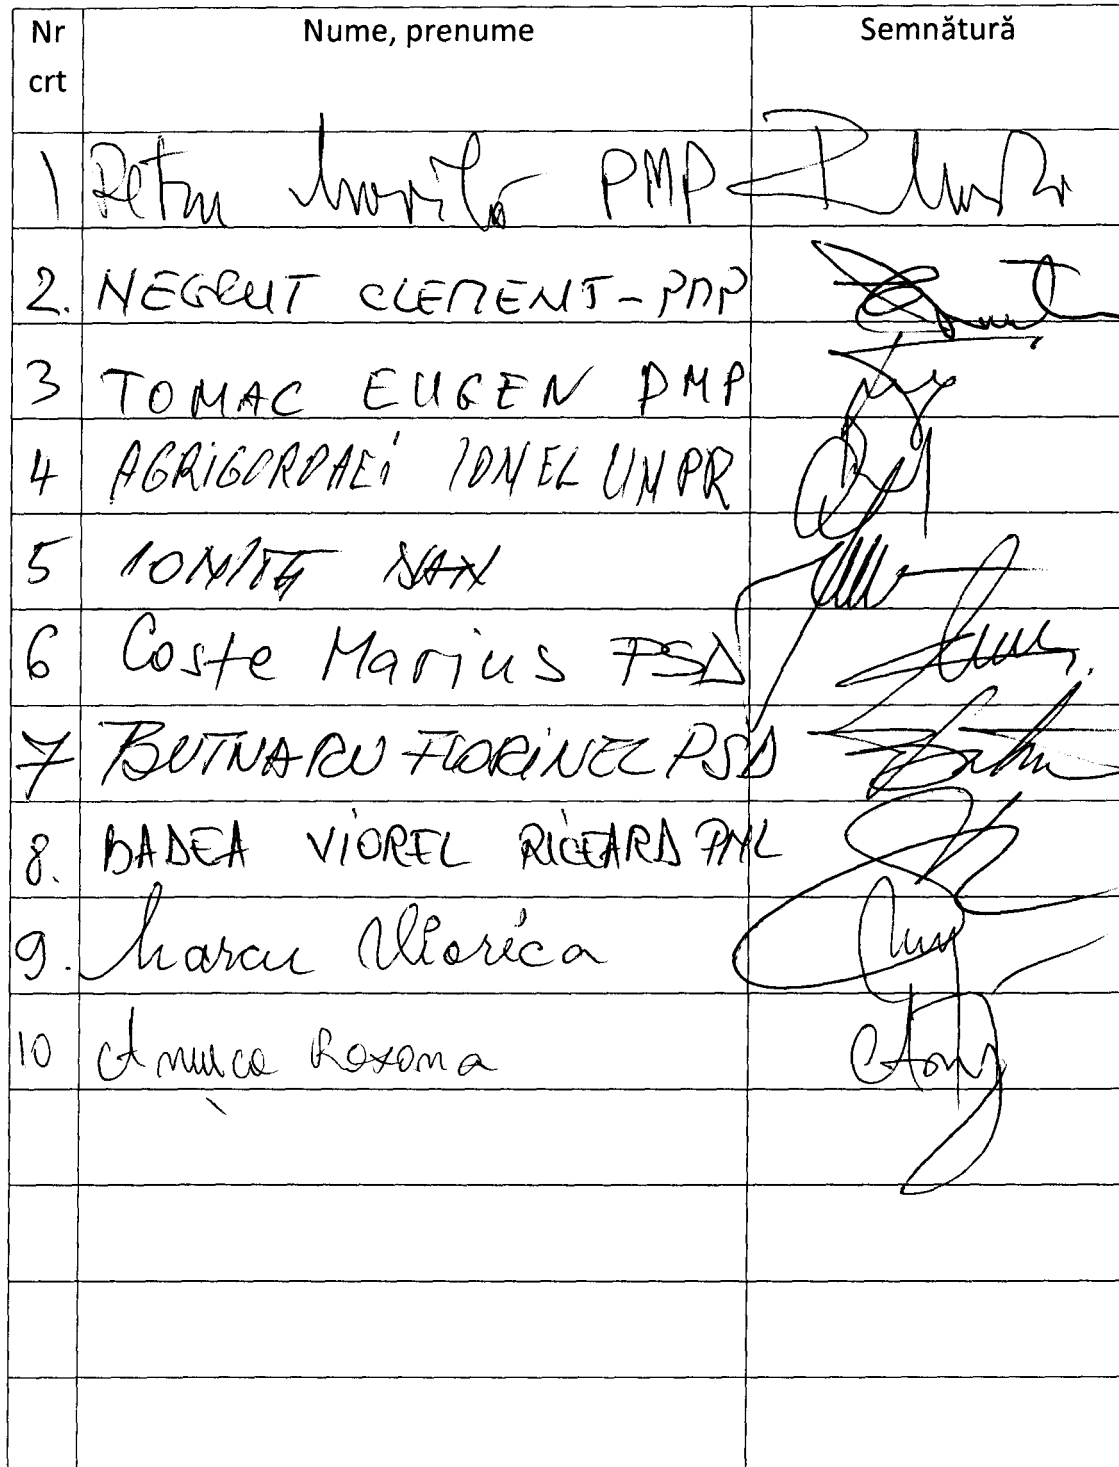 Nr crt Nume, prenume Semnătură
1 Petru Movilă PMP
2. NEGRUT CLEMENT - PMP
3 TOMAC EUGEN PMP
4 AGRIGOROAEi IONEL UNPR
5 IONIȚĂ DAN
6 Coste Marius PSD
7 BUTNARU FLORINEL PSD
8. BADEA VIOREL RICEARD PNL
9. Marcu Viorica
10 Anușca Roxana